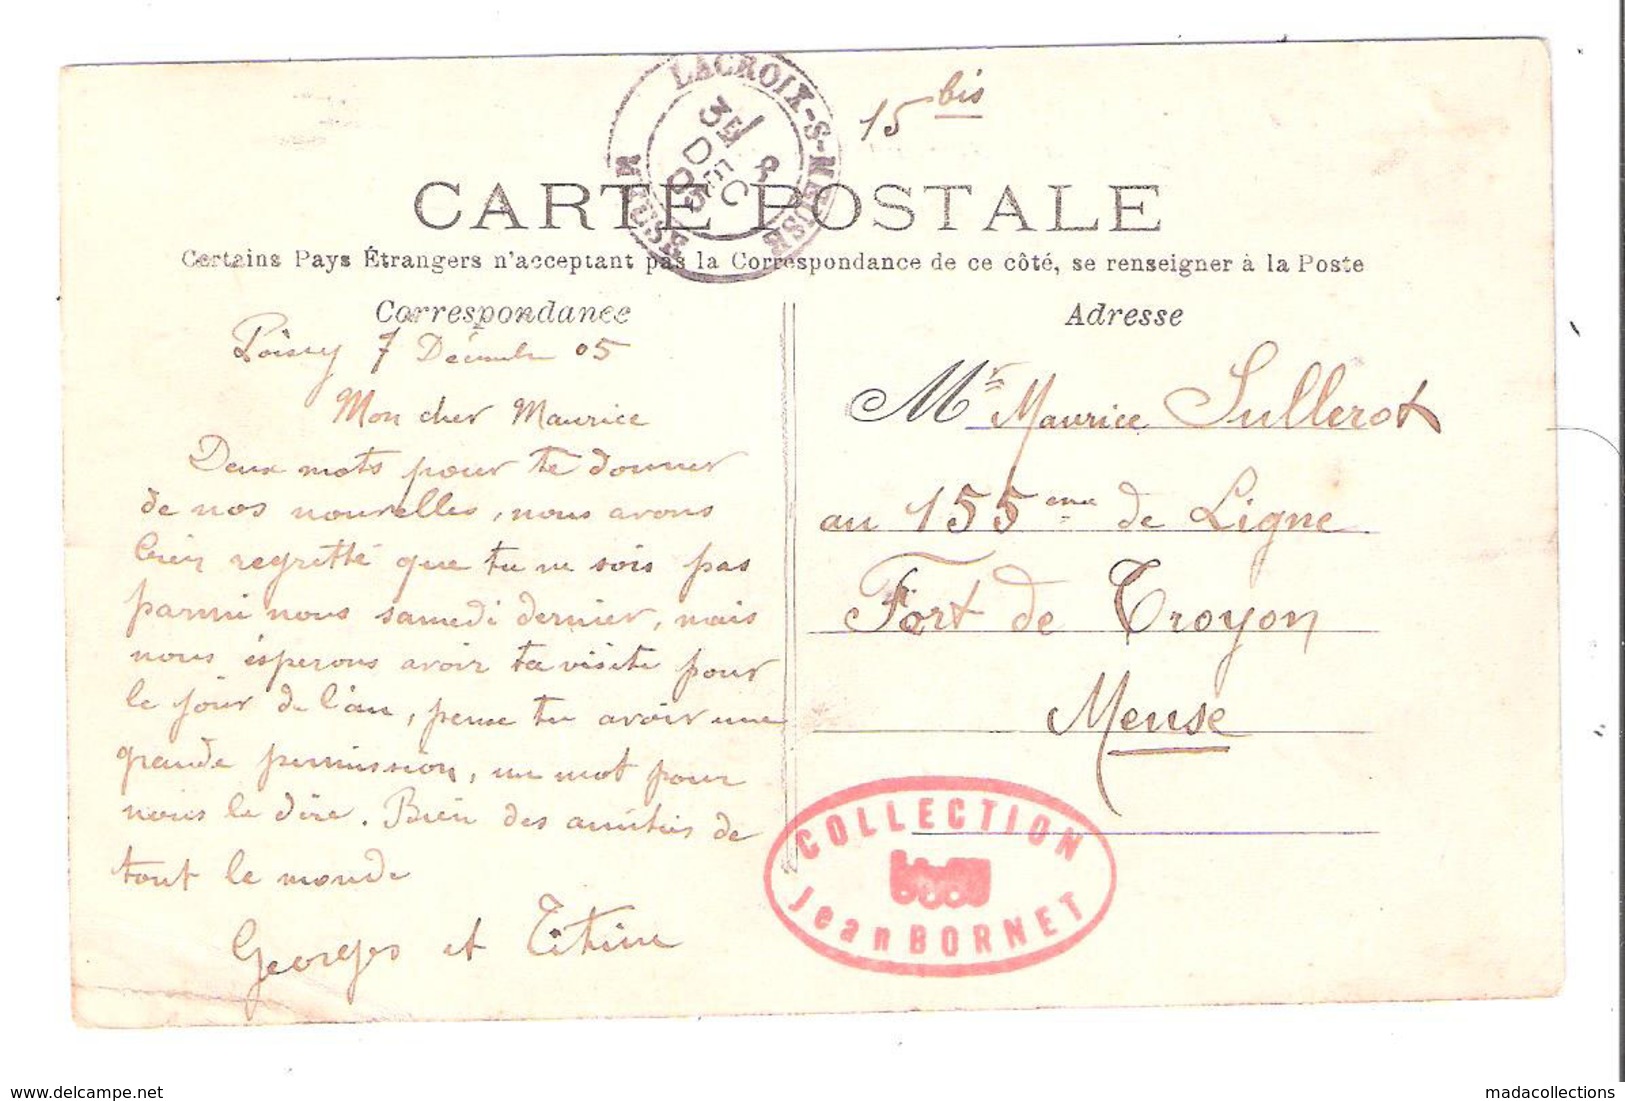 LACROIX-S-MEUSE
MEUSE
3E 8
DEC
05
15 bis
CARTE POSTALE
Certains Pays Étrangers n'acceptant pas la Correspondance de ce côté, se renseigner à la Poste
Correspondance
Poissy 7 Décembre 05
Mon cher Maurice
Deux mots pour te donner
de nos nouvelles, nous avons
bien regretté que tu ne sois pas
parmi nous samedi dernier, mais
nous ésperons avoir ta visite pour
le jour de l'an, pense tu avoir une
grande permission, un mot pour
nous le dire. Bien des amitiés de
tout le monde
Georges et Titine
Adresse
Mr Maurice Sullerot
au 155ème de Ligne
Fort de Troyon
Meuse
COLLECTION
Jean BORNET
www.delcampe.net
madacollections